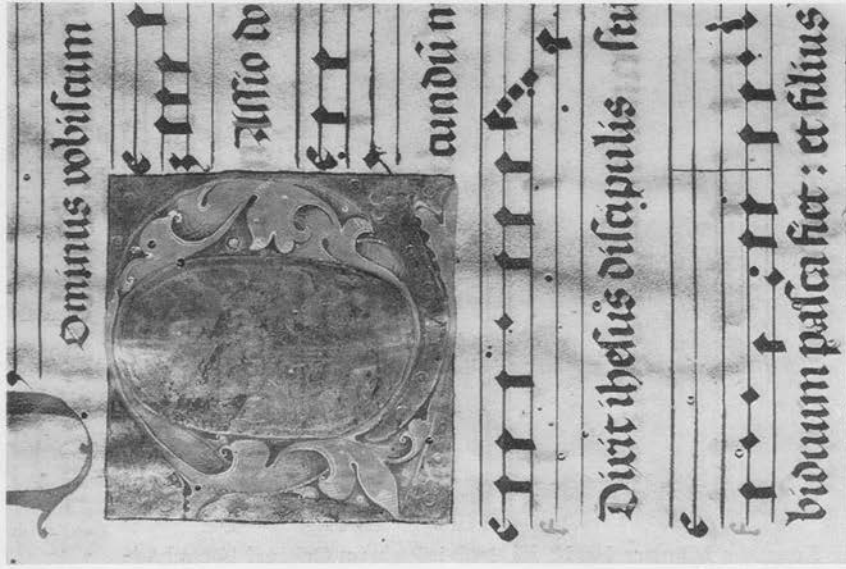 Ominus vobiscum
Assio do
cundũ m
Dixit ihesus discipulis su
biduum pasca fiet : et filius